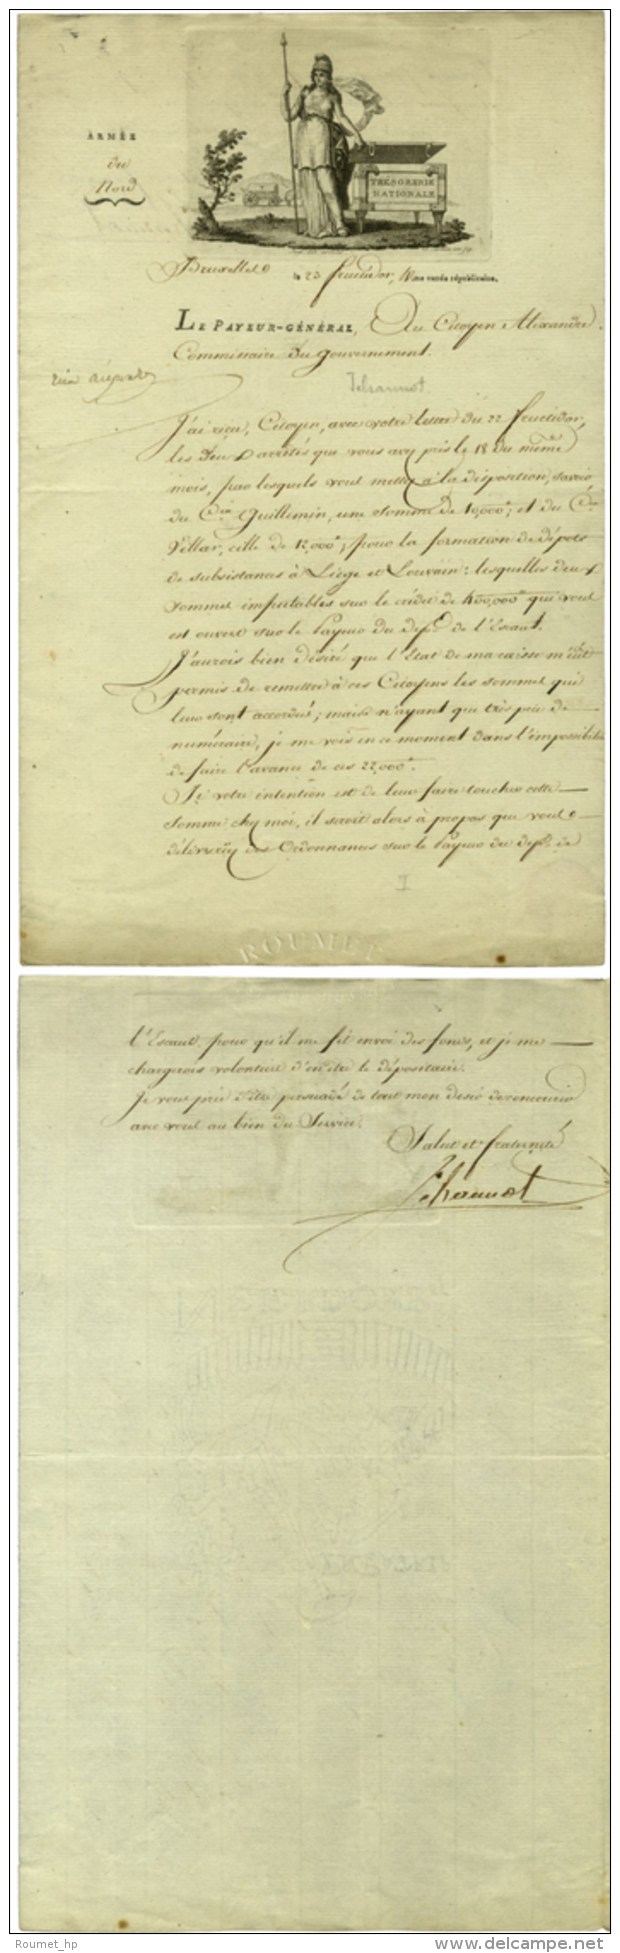 ARMÉE
du
Nord
TRÉSORERIE
NATIONALE
Bruxelles le 23 fructidor, IVme année républicaine.
LE PAYEUR-GÉNÉRAL, Au Citoyen Alexandre
Commissaire du Gouvernement.
rien à répondre
Jehannot
J'ai reçu, Citoyen, avec votre lettre du 22 fructidor,
les deux arrêtés que vous avez pris le 18 du même
mois, par lesquels vous mettez à la disposition, savoir
du Cen Guillemin, une somme de 10,000#; et du Cen
Vellar, celle de 12,000#; pour la formation de dépôts
de subsistances à Liège et Louvain: lesquelles deux
sommes imputables sur le crédit de 400,000# qui vous
est ouvert sur le Payeur du dept de l'Escaut.
J'aurois bien désiré que l'Etat de ma caisse m'eût
permis de remettre à ces Citoyens les sommes qui
leur sont accordées; mais n'ayant que très peu de
numéraire, je me vois en ce moment dans l'impossibilité
de faire l'avance de ces 22,000#.
Si votre intention est de leur faire toucher cette
somme chez moi, il seroit alors à propos que vous
délivrassiez des Ordonnances sur le Payeur du dept de
ROUMET
l'Escaut, pour qu'il me fit envoi des fonds, et je me
chargerois volontiers d'en être le dépositaire.
Je vous prie d'être persuadé de tout mon desir de concourir
avec vous au bien du Service.
Salut et fraternité
Jehannot
Roumet_hp
www.delcampe.net